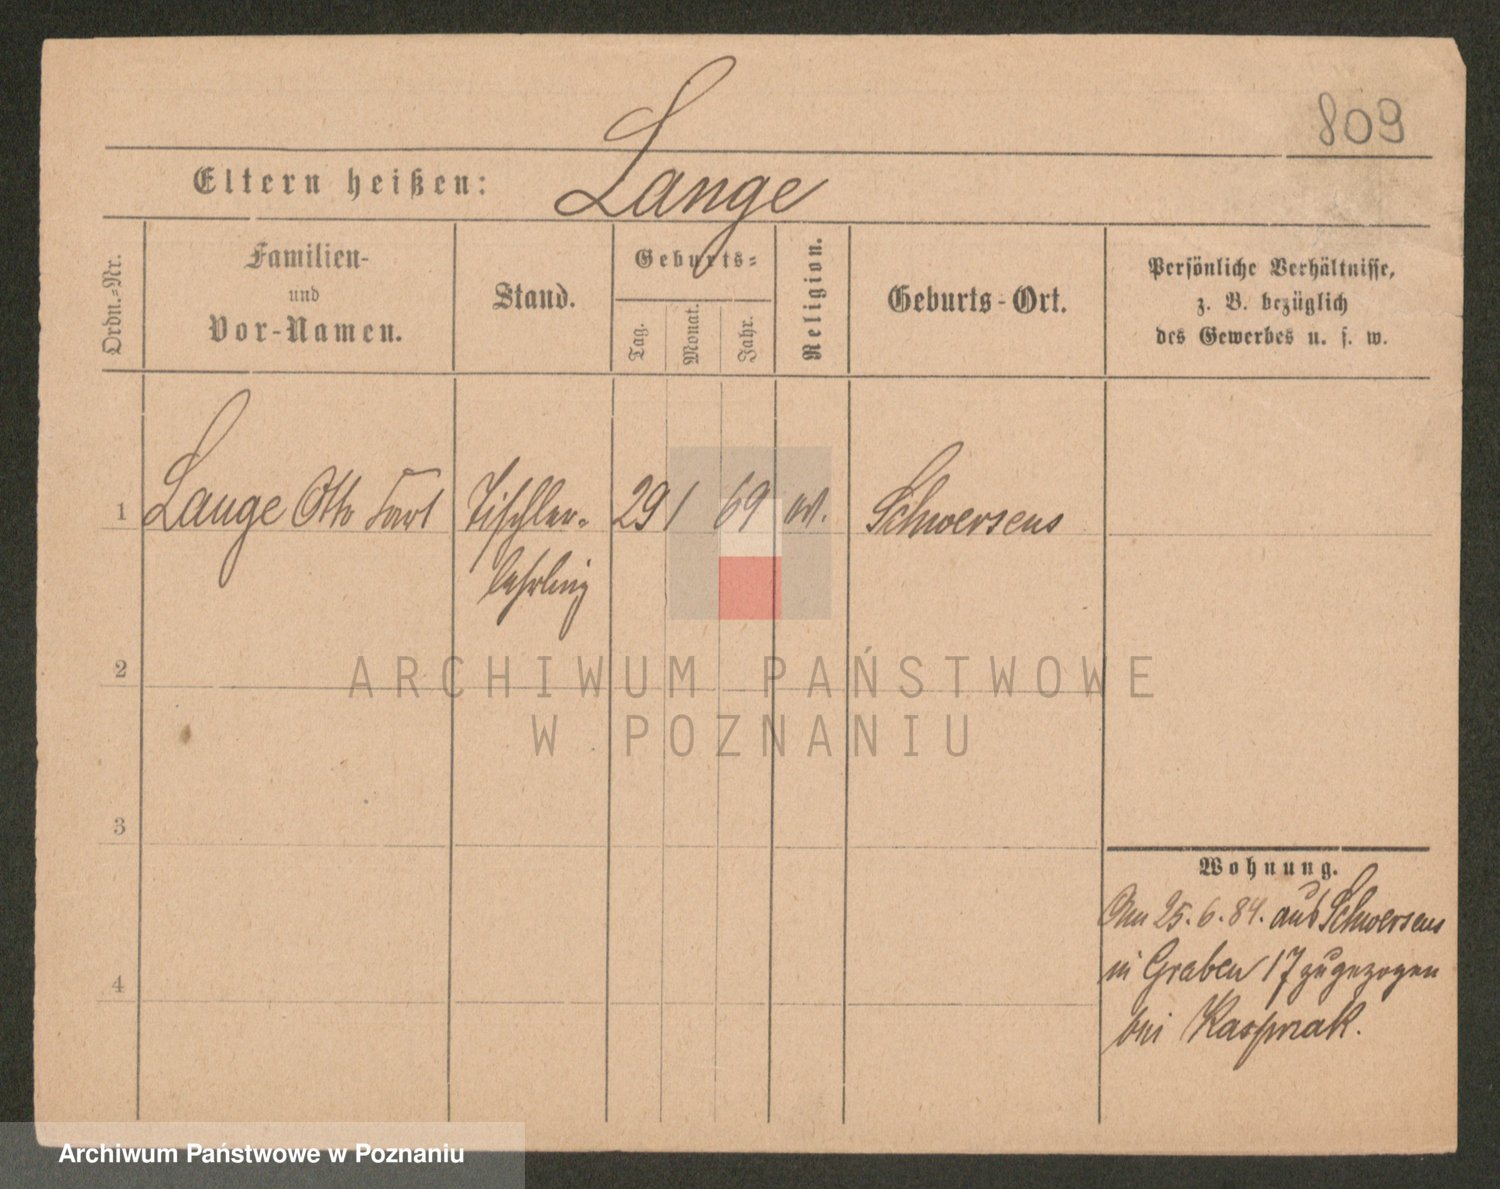 809
Eltern heißen: Lange
Ordn.-Nr.
Familien-
und
Vor-Namen.
Stand.
Geburts-
Tag.
Monat.
Jahr.
Religion.
Geburts-Ort.
Persönliche Verhältnisse,
z. B. bezüglich
des Gewerbes u. s. w.
1 Lange Otto Carl Tischler- 29 1 69 ev. Schwersens
lehrling
2
3
4
Wohnung.
Am 25.6.84. aus Schwersens
in Graben 17 zugezogen
bei Kasprzak.
ARCHIWUM PAŃSTWOWE
W POZNANIU
Archiwum Państwowe w Poznaniu